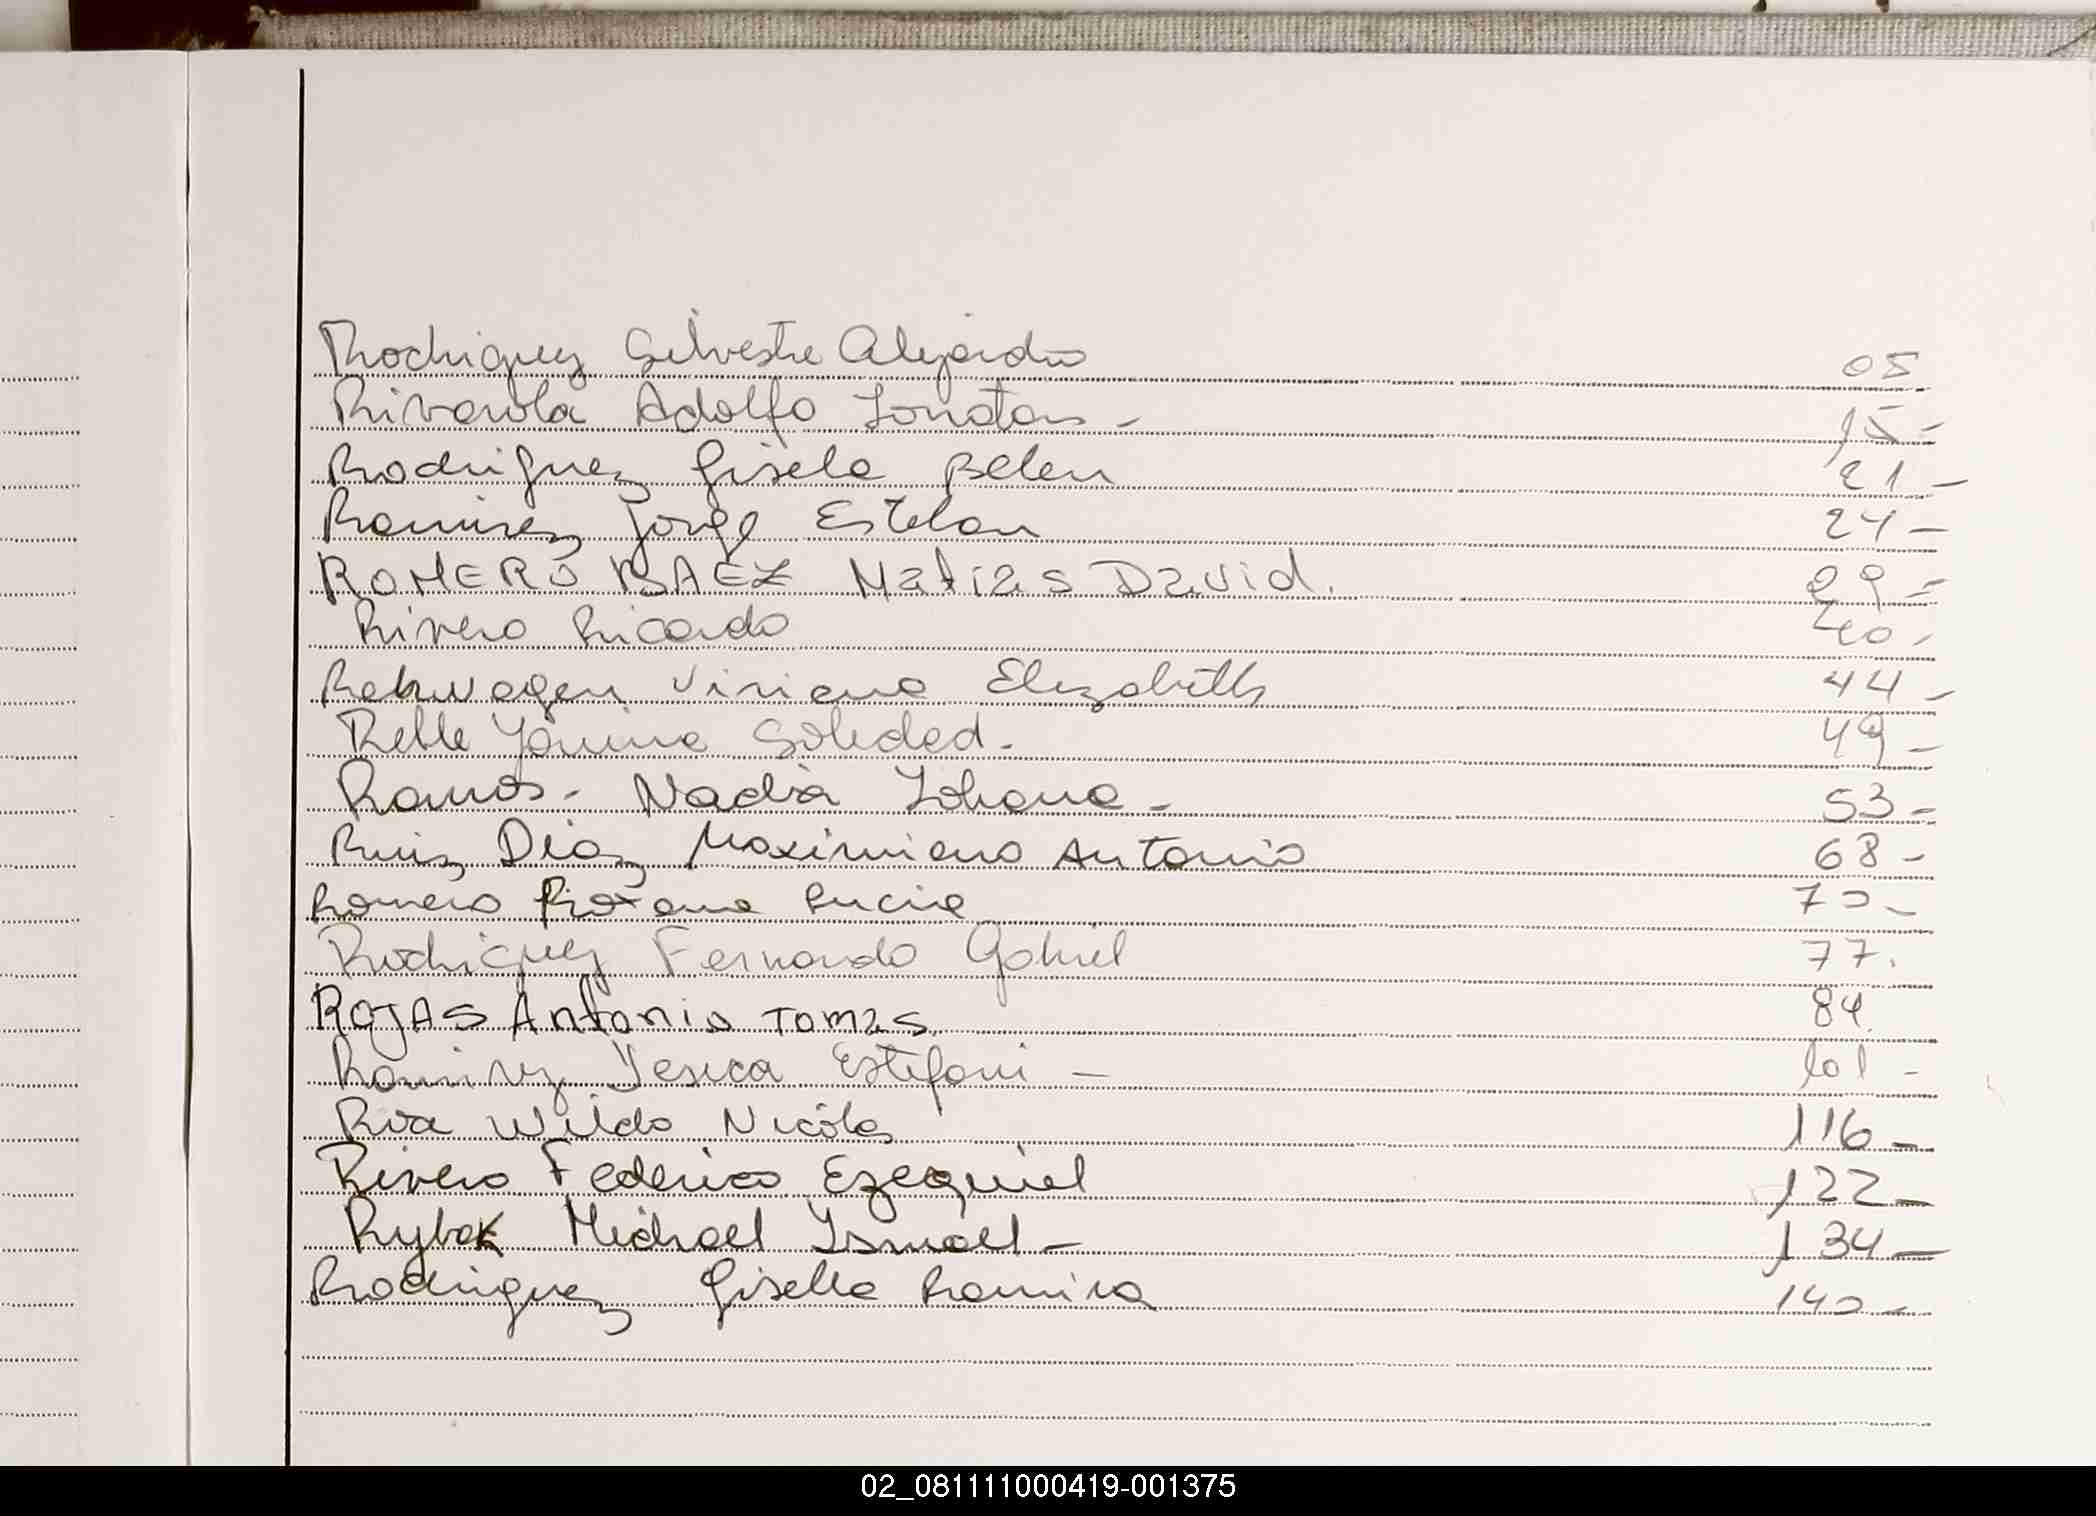 Rodriguez Silvestre Alejandro 05
Rivarola Adolfo Jonatan - 15 -
Rodriguez Gisela Belen 21 -
Ramirez Jorge Esteban 24 -
ROMERO BAEZ Matias David. 29 -
Rivero Ricardo 40 -
Viviana Elizabeth 44 -
Relle Yanina Soledad. 49 -
Ramos - Nadia Johana - 53 -
Ruiz Diaz Maximiano Antonio 68 -
Romero Roxana Lucia 70 -
Rodriguez Fernando Gabriel 77.
ROJAS Antonio Tomas 84.
Ramirez Yesica Estefani - 101 -
Roa Wildo Nicolas 116 -
Rivero Federico Ezequiel 122 -
Rybak Michael Ismael - 134 -
Rodriguez Gisella Ramira 140 -
02_081111000419-001375